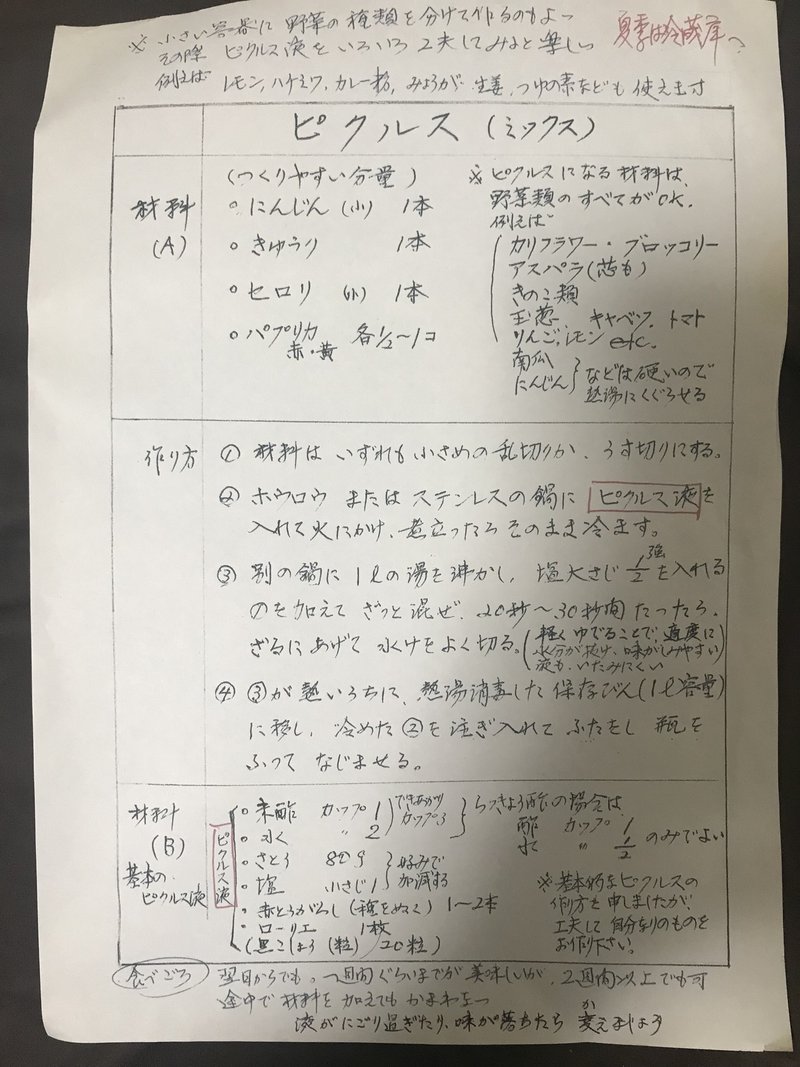 ※ 小さい容器に 野菜の種類を分けて作るのもよー
その際 ピクルス液をいろいろ工夫してみると楽しい
夏季は冷蔵庫へ
例えば レモン,ハチミツ,カレー粉,みょうが 生姜,つゆの素なども 使えます
ピクルス (ミックス)
材料
(A)
(つくりやすい分量)
○ にんじん (小) 1本
○ きゅうり 1本
○ セロリ (小) 1本
○ パプリカ 各1/2〜1コ
赤・黄
※ ピクルスになる材料は、
野菜類のすべてがOK.
例えば
カリフラワー・ブロッコリー
アスパラ(芯も)
きのこ類
玉葱、キャベツ、トマト
りんご,レモン etc.
南瓜
にんじん
などは硬いので
熱湯にくぐらせる
作り方
① 材料は いずれも小さめの乱切りか、うす切りにする。
② ホウロウ またはステンレスの鍋に ピクルス液を
入れて火にかけ、煮立ったら そのまま冷ます。
③ 別の鍋に 1ℓの湯を沸かし、塩大さじ 1/2強を入れる
のを加えて ざっと混ぜ、20秒〜30秒間たったら、
ざるにあげて 水けをよく切る。
(軽くゆでることで、適度に
水分が抜け、味がしみやすい
液も、いたみにくい)
④ ③が熱いうちに、熱湯消毒した保存びん(1ℓ容量)
に移し、冷めた②を注ぎ入れて ふたをし 瓶を
ふって なじませる。
材料
(B)
基本の
ピクルス液
ピクルス液
○ 米酢 カップ 1
○ 水 〃 2
できあがり
カップ3
○ さとう 80g
○ 塩 小さじ1
好みで
加減する
○ 赤とうがらし (種をぬく) 1〜2本
○ ローリエ 1枚
(黒こしょう (粒) 20粒)
らっきょう酢の場合は、
酢 カップ 1
水 〃 1/2
のみでよい
※基本的なピクルスの
作り方を申しましたが、
工夫して自分なりのものを
お作り下さい。
食べごろ 翌日からでも。一週間ぐらいまでが美味しいが、2週間以上でも可
途中で材料を加えてもかまわなー
液がにごり過ぎたり、味が落ちたら 変えましょう
か